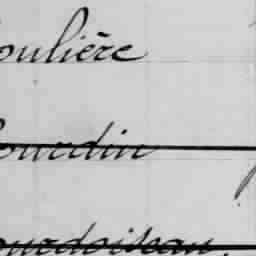 oulière
ourdin
ourdoiseau